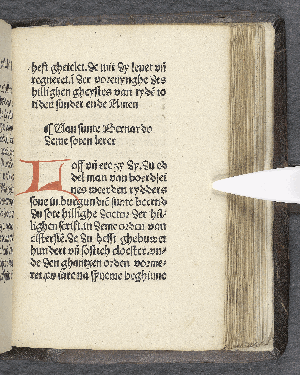 heft ghetelet. De mit dy leuet vn̄
regneret. ī der vorenynghe des
hillighen gheystes van tyde to
tiden sunder ende Amen
¶ Uan sunte Bernardo
deme soten lerer
Loff vn̄ ere sy dy. Du ed
del man van bordich
nes weerden rydders
sone in burgundiē sunte bernd
Du sote hillighe doctor der hil-
lighen scrift. in deme orden van
cistersiē. De du hefst ghebuwet
hundert vn̄ sostich cloester. vn-
de den ghantzen orden vorme-
ret. beghunne